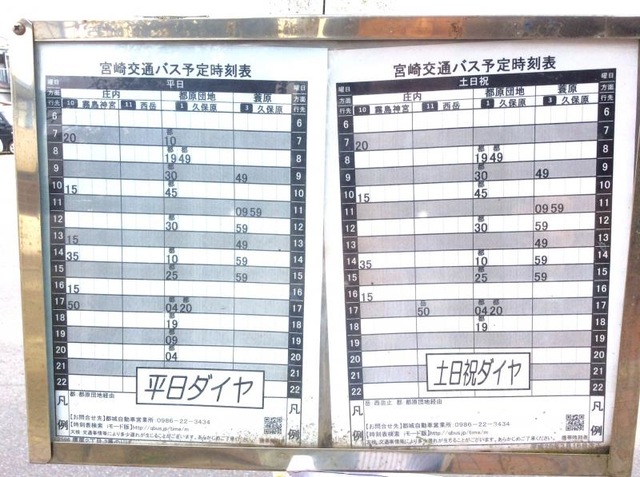 宮崎交通バス予定時刻表
曜日 平日 曜日
方面 庄内 都原団地 蓑原 方面
行先 10 霧島神宮 11 西岳 1 久保原 3 久保原 行先
6 6
7 20 都 10 7
8 都 都 19 49 8
9 都 30 49 9
10 15 都 45 10
11 09 59 11
12 都 30 59 12
13 15 49 13
14 35 都 10 59 14
15 都 25 59 15
16 15 16
17 50 都 都 04 20 17
18 都 19 18
19 都 09 19
20 都 04 20
21 21
22 22
平日ダイヤ
都:都原団地経由
凡例
【お問合せ先】都城自動車営業所 0986-22-3434
【時刻表検索 iモード版】http://qbus.jp/time/m
天候・交通事情等により多少遅れが生じることがございます。あらかじめご了承ください。
宮崎交通バス予定時刻表
曜日 土日祝 曜日
方面 庄内 都原団地 蓑原 方面
行先 10 霧島神宮 11 西岳 1 久保原 3 久保原 行先
6 6
7 20 7
8 都 都 19 49 8
9 都 30 49 9
10 15 都 45 10
11 09 59 11
12 都 30 59 12
13 13
14 35 都 10 59 14
15 都 25 59 15
16 15 16
17 岳 50 都 都 04 20 17
18 都 19 18
19 19
20 20
21 21
22 22
土日祝ダイヤ
岳:西岳止 都:都原団地経由
凡例
【お問合せ先】都城自動車営業所 0986-22-3434
【時刻表検索 iモード版】http://qbus.jp/time/m
天候・交通事情等により多少遅れが生じることがございます。あらかじめご了承ください。
携帯時刻表